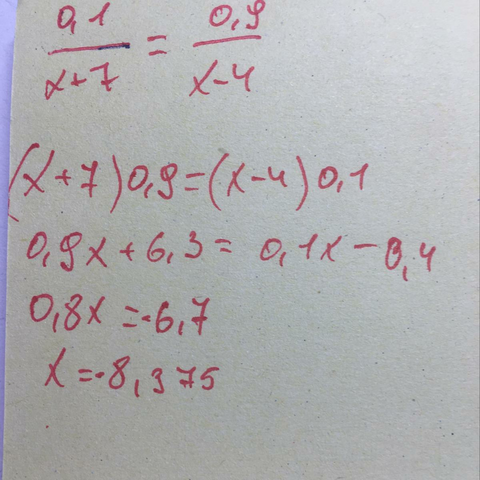 0,1/x+7 = 0,9/x-4
(x+7)0,9=(x-4)0,1
0,9x+6,3= 0,1x-0,4
0,8x=-6,7
x=-8,375